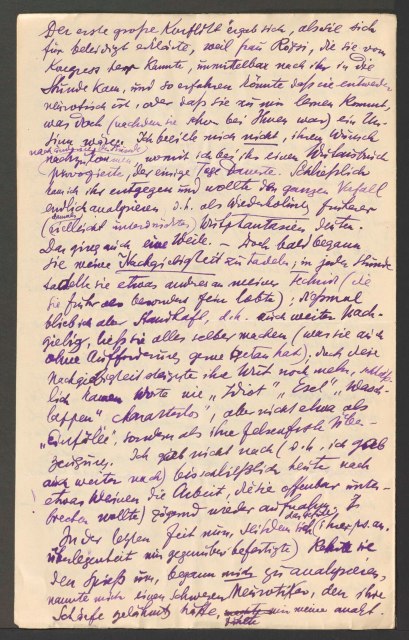 Der erste große Konflikt ergab sich, als sie sich
für beleidigt erklärte, weil Frau Rossi, die sie vom
Kongress her kannte, unmittelbar nach ihr in die
Stunde kam, und so erfahren könnte daß sie entweder
neurotisch ist, oder daß sie zu mir lernen kommt,
was doch (nachdem sie schon bei Ihnen war) ein Un-
sinn wäre. Ich beeilte mich nicht, ihrem Wunsch
nach
nachzukommen, womit ich bei ihr einen Wutausbruch
provozierte, der einige Tage dauerte. Schließlich
kam ich ihr entgegen und wollte den ganzen Vorfall
endlich analysieren d.h. als Wiederholung früherer
damals
(vielleicht unterdrückter) Wutphantasien deuten.
Das ging auch eine Weile. – Doch bald begann
sie meine Nachgiebigkeit zu tadeln; in jeder Stunde
tadelte sie etwas anderes an meiner Technik (die
sie früher als besonders fein lobte); diesmal
blieb ich aber standhaft, d.h. auch weiter nach-
giebig, ließ sie alles selber machen (was sie auch
ohne Aufforderung gerne getan hat). Doch diese
Nachgiebigkeit steigerte ihre Wut noch mehr, schließ-
lich kamen Worte wie „Idiot" „Esel" „Wasch-
lappen" „charakterlos", aber nicht etwa als
„Einfälle", sondern als ihre felsenfeste Über-
zeugung. Ich gab nicht nach (d.h. ich gab
auch weiter nach) bis schließlich heute nach
etwas kleinem die Arbeit, die sie offenbar unter-
brechen wollte) zögernd wieder aufnahm.
In der letzten Zeit nun, seitdem sich (ihrer
Überlegenheit mir gegenüber befestigte) kehrte sie
den Spieß um, begann mich zu analysieren,
nannte mich einen schweren Neurotiker, den ihre
Schärfe gelähmt hätte, mir meine